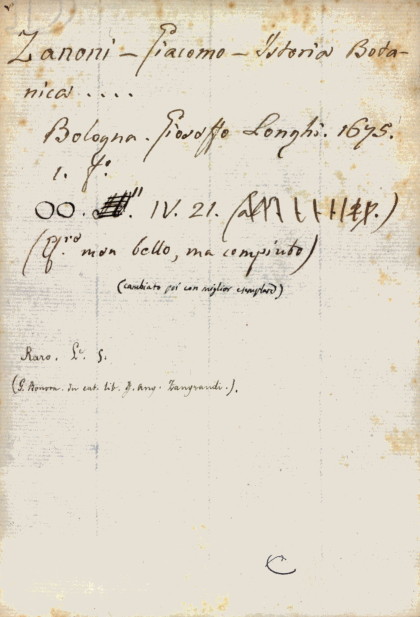 Zanoni – Giacomo – Istoria Bota-
nica . . . .
Bologna. Gioseffo Longhi. 1675.
1. f.º
OO. IV. 21.
non bello, ma compiuto)
(cambiato poi con miglior esemplare)
Raro. L.e 5.
(G. in cat. lib. Ang. Zangrandi.).
C